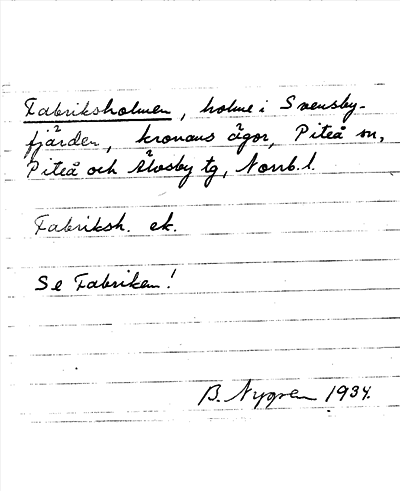 Fabriksholmen, holme i Svensby-
fjärden, kronans ägor, Piteå sn,
Piteå och Älvsby tg, Norrb. l.
Fabriksh. ek.
Se Fabriken!
B. Nygren 1934.